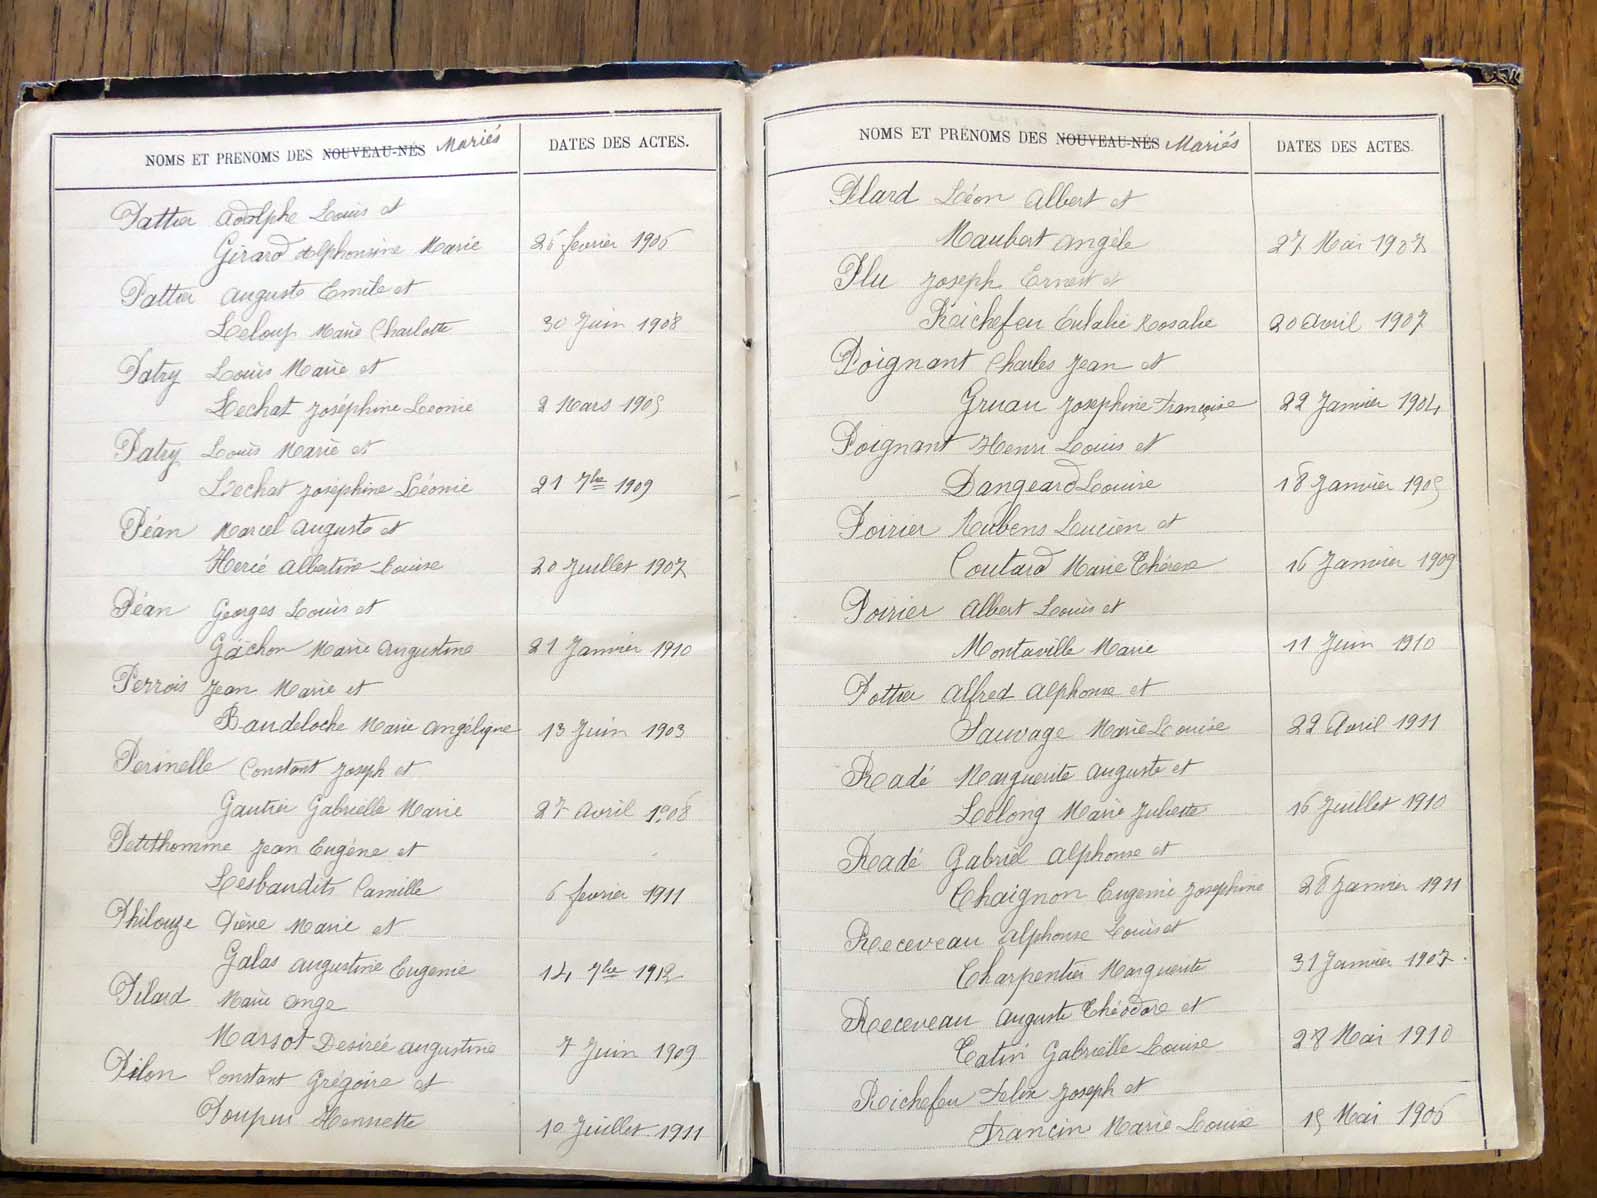 NOMS ET PRÉNOMS DES NOUVEAU-NÉS Mariés
DATES DES ACTES.
Pattier Adolphe Louis et
Girard Alphonsine Marie 26 février 1906
Pattier Auguste Emile et
Leloup Marie Charlotte 30 Juin 1908
Patry Louis Marie et
Lechat Joséphine Leonie 2 Mars 1905
Patry Louis Marie et
Lechat Joséphine Léonie 21 7bre 1909
Péan Marcel Auguste et
Albertine Louise 20 Juillet 1907
Péan Georges Louis et
Gâchon Marie Augustine 21 Janvier 1910
Perrois Jean Marie et
Baudeloche Marie Angélique 13 Juin 1903
Perinelle Constant Joseph et
Gautier Gabrielle Marie 27 Avril 1908
Petithomme Jean Eugène et
Lesbaudits Camille 6 février 1911
Philouze Pierre Marie et
Galas Augustine Eugenie 14 7bre 1912
Pilard Marie Ange
Marsot Desirée Augustine 7 Juin 1909
Pilon Constant Grégoire et
Poupin Henriette 10 Juillet 1911
NOMS ET PRÉNOMS DES NOUVEAU-NÉS Mariés
DATES DES ACTES.
Plard Léon Albert et
Maubert Angèle 27 Mai 1907
Plu Joseph Ernest et
Roichefeu Eulalie Rosalie 20 Avril 1907
Poignant Charles Jean et
Gruau Josephine Françoise 22 Janvier 1904
Poignant Henri Louis et
Dangeard Louise 18 Janvier 1905
Poirier Rubens Lucien et
Coutard Marie Thérèse 16 Janvier 1909
Poirier Albert Louis et
Montaville Marie 11 Juin 1910
Pottier Alfred Alphonse et
Sauvage Marie Louise 22 Avril 1911
Radé Marguerite Auguste et
Lelong Marie Juliette 16 Juillet 1910
Radé Gabriel Alphonse et
Chaignon Eugenie Josephine 28 Janvier 1911
Receveau Alphonse Louis et
Charpentier Marguerite 31 Janvier 1907.
Receveau Auguste Théodore et
Catin Gabrielle Louise 28 Mai 1910
Roichefeu Felix Joseph et
Francin Marie Louise 15 Mai 1906